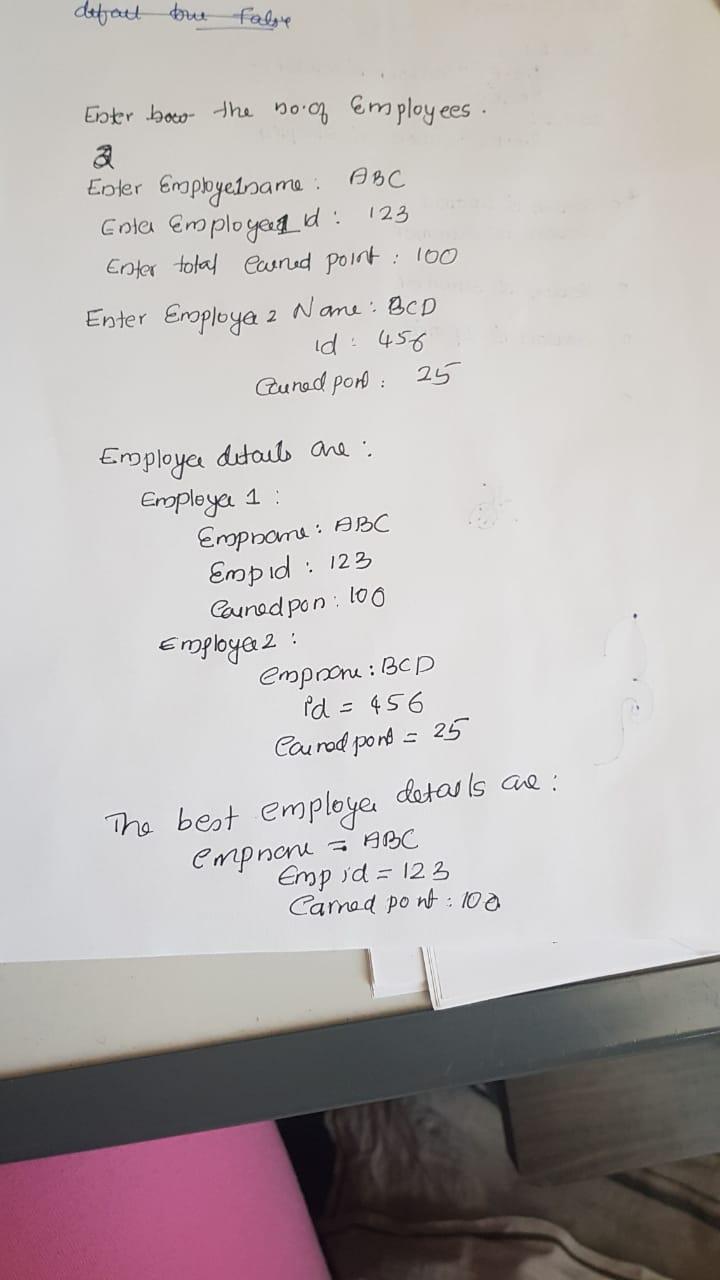 defalt true False
Enter how the no.of Employees.
2
Enter Employe1name : ABC
Enter Employee1 id : 123
Enter total earned point : 100
Enter Employee 2 Name : BCD
id : 456
Earned point : 25
Employee details are :
Employee 1 :
Empname : ABC
Emp id : 123
Earned poin : 100
Employee2 :
empname : BCD
id = 456
Earned point = 25
The best employee details are :
empname = ABC
Emp id = 123
Earned point : 100